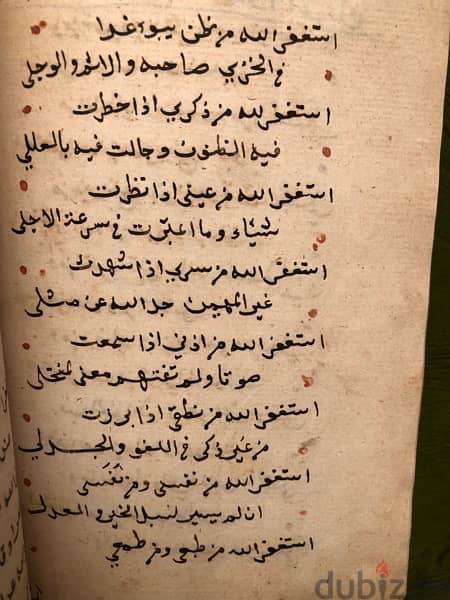 استغفر الله من ظن يبوء غدا
في الخزي صاحبه والاثم والوجلي
استغفر الله من ذكري اذا خطرت
فيه الظنون وجالت فيه بالعللي
استغفر الله من عيني اذا نظرت
شياء وما اعتبرت في سرعة الاجلي
استغفر الله من سري اذا شهدت
غير المهيمن جل الله عن مثلي
استغفر الله من اذني اذا سمعت
صوتا ولم تفتهم معنى
استغفر الله من نطقي اذا برزت
من غير ذكر في اللغو والجدلي
استغفر الله من نفسي ومن نفسي
ان لم يسير لنبل الخير و
استغفر الله من طبعي ومن طمعي
dubizzle